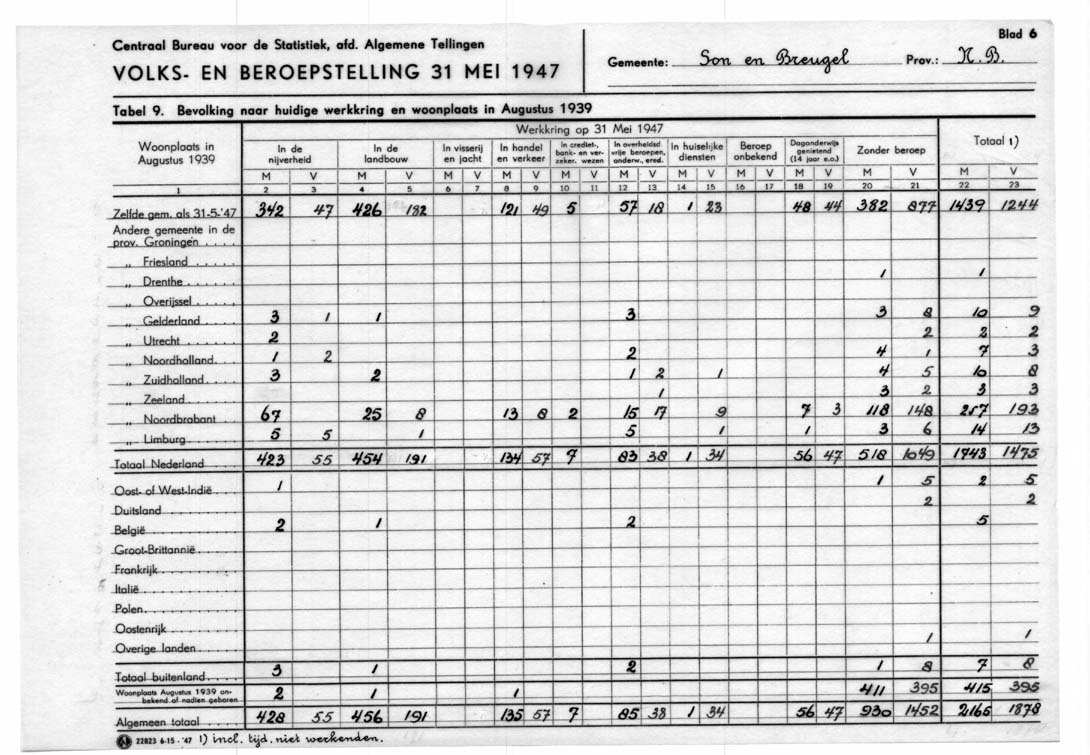 Blad 6
Centraal Bureau voor de Statistiek, afd. Algemene Tellingen
VOLKS- EN BEROEPSTELLING 31 MEI 1947
Gemeente: Son en Breugel Prov.: N.B.
Tabel 9. Bevolking naar huidige werkkring en woonplaats in Augustus 1939
Woonplaats in Augustus 1939
Werkkring op 31 Mei 1947
Totaal 1)
In de nijverheid
In de landbouw
In visserij en jacht
In handel en verkeer
In crediet-, bank- en verzeker. wezen
In overheidsd vrije beroepen, onderw., ered.
In huiselijke diensten
Beroep onbekend
Dagonderwijs genietend (14 jaar e.o.)
Zonder beroep
M V M V M V M V M V M V M V M V M V M V M V
1 2 3 4 5 6 7 8 9 10 11 12 13 14 15 16 17 18 19 20 21 22 23
Zelfde gem. als 31-5-'47 342 47 426 182 121 49 5 57 18 1 23 48 44 382 877 1439 1244
Andere gemeente in de
prov. Groningen
„ Friesland
„ Drenthe 1 1
„ Overijssel
„ Gelderland 3 1 1 3 3 8 10 9
„ Utrecht 2 2 2 2
„ Noordholland 1 2 2 4 1 7 3
„ Zuidholland 3 2 1 2 1 4 5 10 8
„ Zeeland 1 3 2 3 3
„ Noordbrabant 67 25 8 13 8 2 15 17 9 7 3 118 148 257 193
„ Limburg 5 5 1 5 1 1 3 6 14 13
Totaal Nederland 423 55 454 191 134 57 7 83 38 1 34 56 47 518 1049 1743 1475
Oost- of West-Indië 1 1 5 2 5
Duitsland 2 2
België 2 1 2 5
Groot-Brittannië
Frankrijk
Italië
Polen
Oostenrijk
Overige landen 1 1
Totaal buitenland 3 1 2 1 8 7 8
Woonplaats Augustus 1939 onbekend of nadien geboren 2 1 1 411 395 415 395
Algemeen totaal 428 55 456 191 135 57 7 85 38 1 34 56 47 930 1452 2165 1878
22823 6-15-'47 1) incl. tijd. niet werkenden.